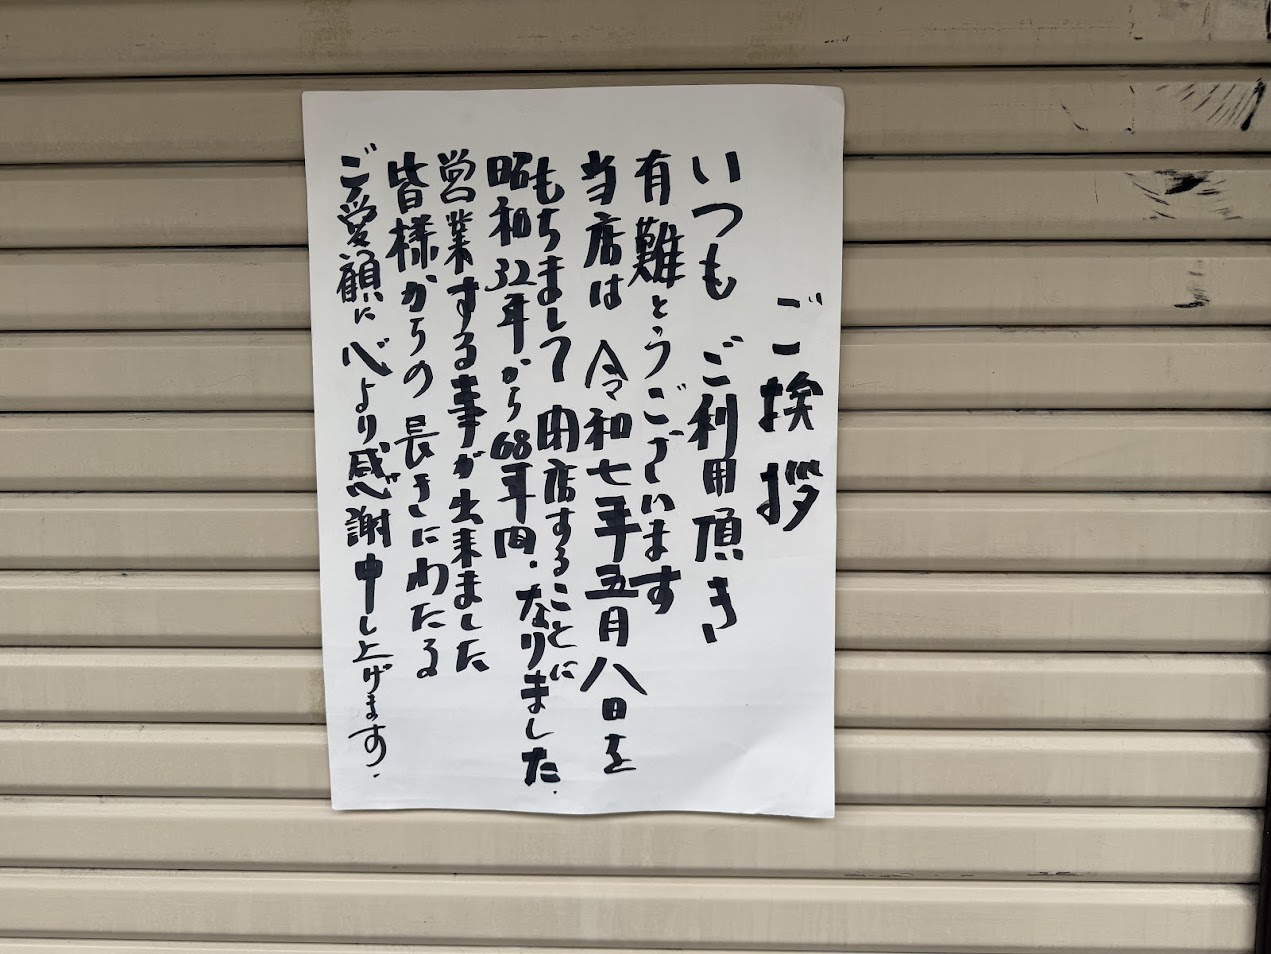 ご挨拶
いつも ご利用頂き
有難とうございます
当店は 令和七年五月八日を
もちまして 閉店することに
なりました.
昭和32年から68年間.
営業する事が出来ました
皆様からの 長きにわたる
ご愛顧に 心より感謝申し上げます.